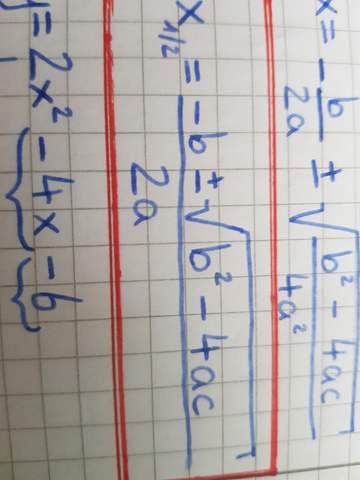 x = - b/2a ± √(b² - 4ac / 4a²)
x₁/₂ = (-b ± √(b² - 4ac)) / 2a
y = 2x² - 4x - 6